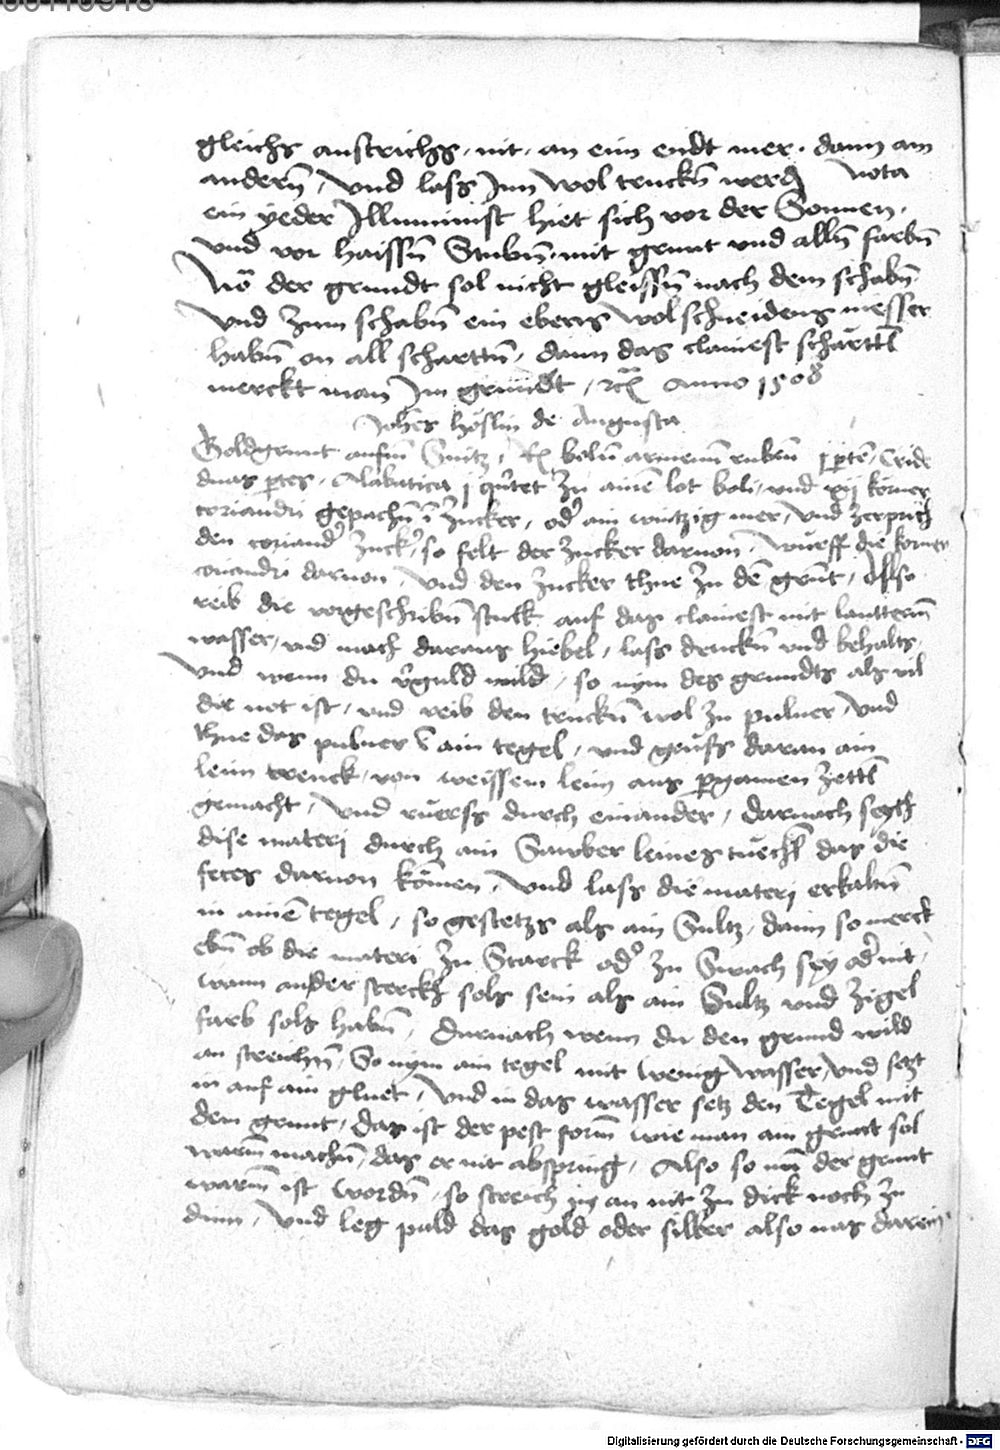 gleichs anstrichs, nit, an eim endt mer, dann am
andern̄, vnd lass Inn wol truckn̄ werdn̄ Nota
ein yeder Illuminist hiet sich vor der Sonnen,
vnd vor haissn̄ Stubn̄, mit grunt vnd alln̄ farbn̄
der grundt sol nicht gleissn̄ nach dem schabn̄
vnd zum schabn̄ ein ebens wol schneidens messer
habn̄ on all scharttn̄, dann das clainest schärttl
merckt man Im grundt, Anno 1508
Johēs höslin de Augusta
Goldgrunt aufm̄ bolū armenū rubeū j ptē, Cride
duas ptes, Alabatica j zu ainē lot boli, vnd xij körner
coriandri gepachn̄ ī Zucker, od' ain wintzig mer, vnd zerprich
den coriand' Zuck', so felt der Zucker daruon, wuerff die körner
coriandri daruon, vnd den Zucker thue zu dē grūt, Also
reib die vorgeschribn̄ stuck auf das clainest mit lautterm̄
wasser, vnd mach daraus hiebel, lass druckn̄ vnd behalts,
vnd wenn du v'guld wild, so nym des grundts als vil
dir not ist, vnd reib den truckn̄ wol zu puluer, vnd
thue das puluer ī ain tegel, vnd geuss daran ain
leim trenck, von weissem leim aus pergamen zettl
gemacht, vnd ruerss durch einander, darnach seych
dise materj durch ain Sauber leines tuechl das die
feces daruon kömen, vnd lass die materj erkaltn̄
in ainē tegel, so gestetzs als ain Sultz, dann so merck
ebn̄ ob die materi zu Starck od' zu Swach sey od' nit,
wann an der sterckh sols sein als ain Sultz vnd Zigel
farb sols habn̄, Darnach wenn du den grund wild
an streichn̄, So nym ain tegel mit wenig wasser, vnd setzt
in auf ain gluet, vnd in das wasser setz den Tegel mit
dem grunt, das ist der pest form̄ wie man ain grunt sol
warm̄ machn̄, das er nit abspring, Also so nū der grunt
warm̄ ist wordn̄, so streich in an nit zu dick noch zu
dinn, vnd leg pald das gold oder silber also nas darein
Digitalisierung gefördert durch die Deutsche Forschungsgemeinschaft - DFG